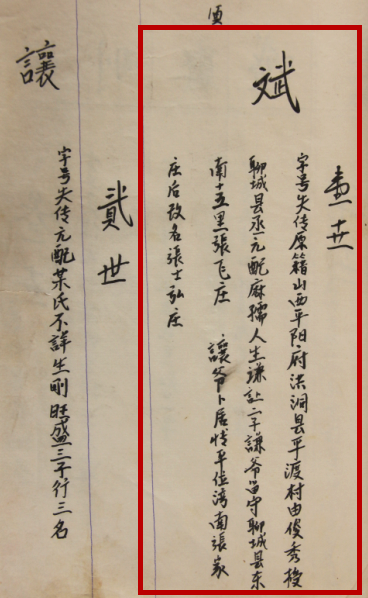 壹世
斌
字号失传原籍山西平阳府洪洞县平渡村由俊秀授
聊城县丞元配麻孺人生谦让二子谦爷留守聊城县东
南十五里張飞庄 讓爷卜居恃平位湾南張家
庄后改名張士弘庄
貳世
讓
字号失传元配某氏不詳生刚旺盛三子行三名